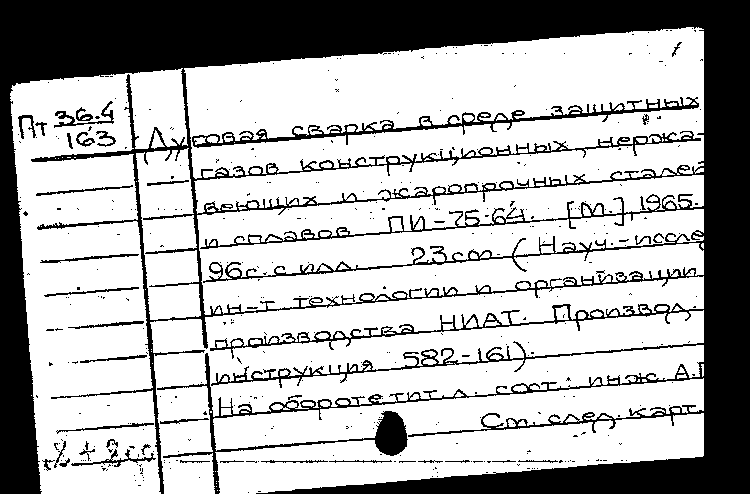 Пт 36.4
163
Дуговая сварка в среде защитных
газов конструкционных, нержа-
веющих и жаропрочных сталей
и сплавов ПИ-75-64. [М.], 1965.
96с. с илл. 23см. (Науч.-иссле
ин-т технологии и организации
производства НИАТ. Производ.
инструкция 582-161).
На обороте тит. л. сост.: инж. А.П
См. след. карт.